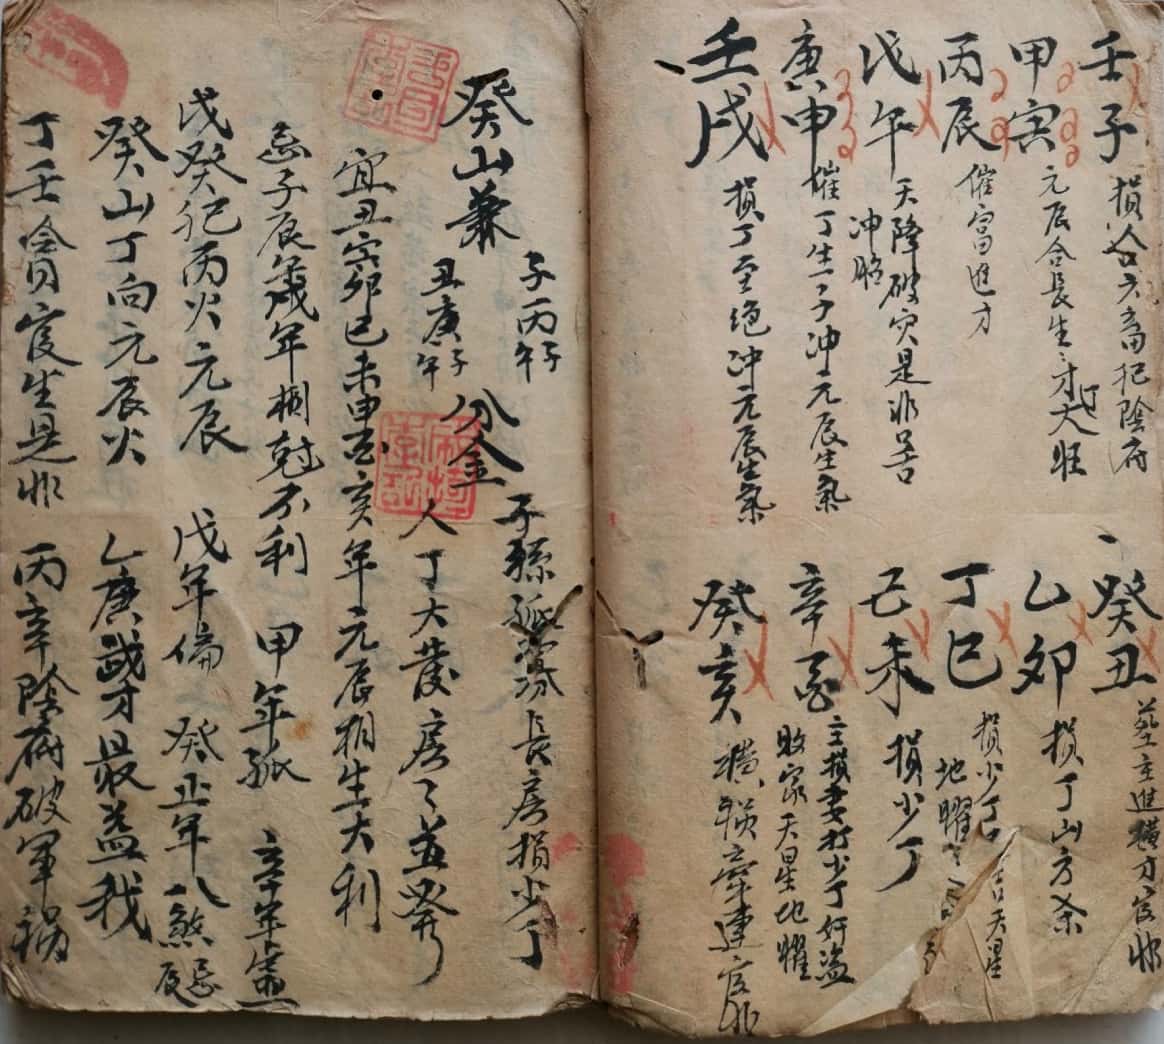 壬子 損人口六畜犯陰府
甲寅 元辰合長生丁才大旺
丙辰 催富進才
戊午 天降破灾是非苦
冲胎
庚申 催丁生一子冲元辰生氣
壬戌 損丁至绝冲元辰生氣
癸丑 葬主進横才官非
乙卯 損丁山方杀
丁巳 損少丁 天星
地曜
己未 損少丁
辛酉 主損妻打少丁奸盗
敗家天星地曜
癸亥 横禍牽連官非
癸山兼
子丙子午
丑庚子午
分金
子孫孤寡长房損少丁
人丁大發房〻並發
宜丑寅卯巳未申酉亥年元辰相生大利
忌子辰歲年相尅不利 甲年孤 辛年虚
戊癸犯丙火元辰 戊年偏 癸正年八煞忌
癸山丁向元辰火 乙庚 才最益我
丁壬貪官生是非 丙辛陰府破軍禍